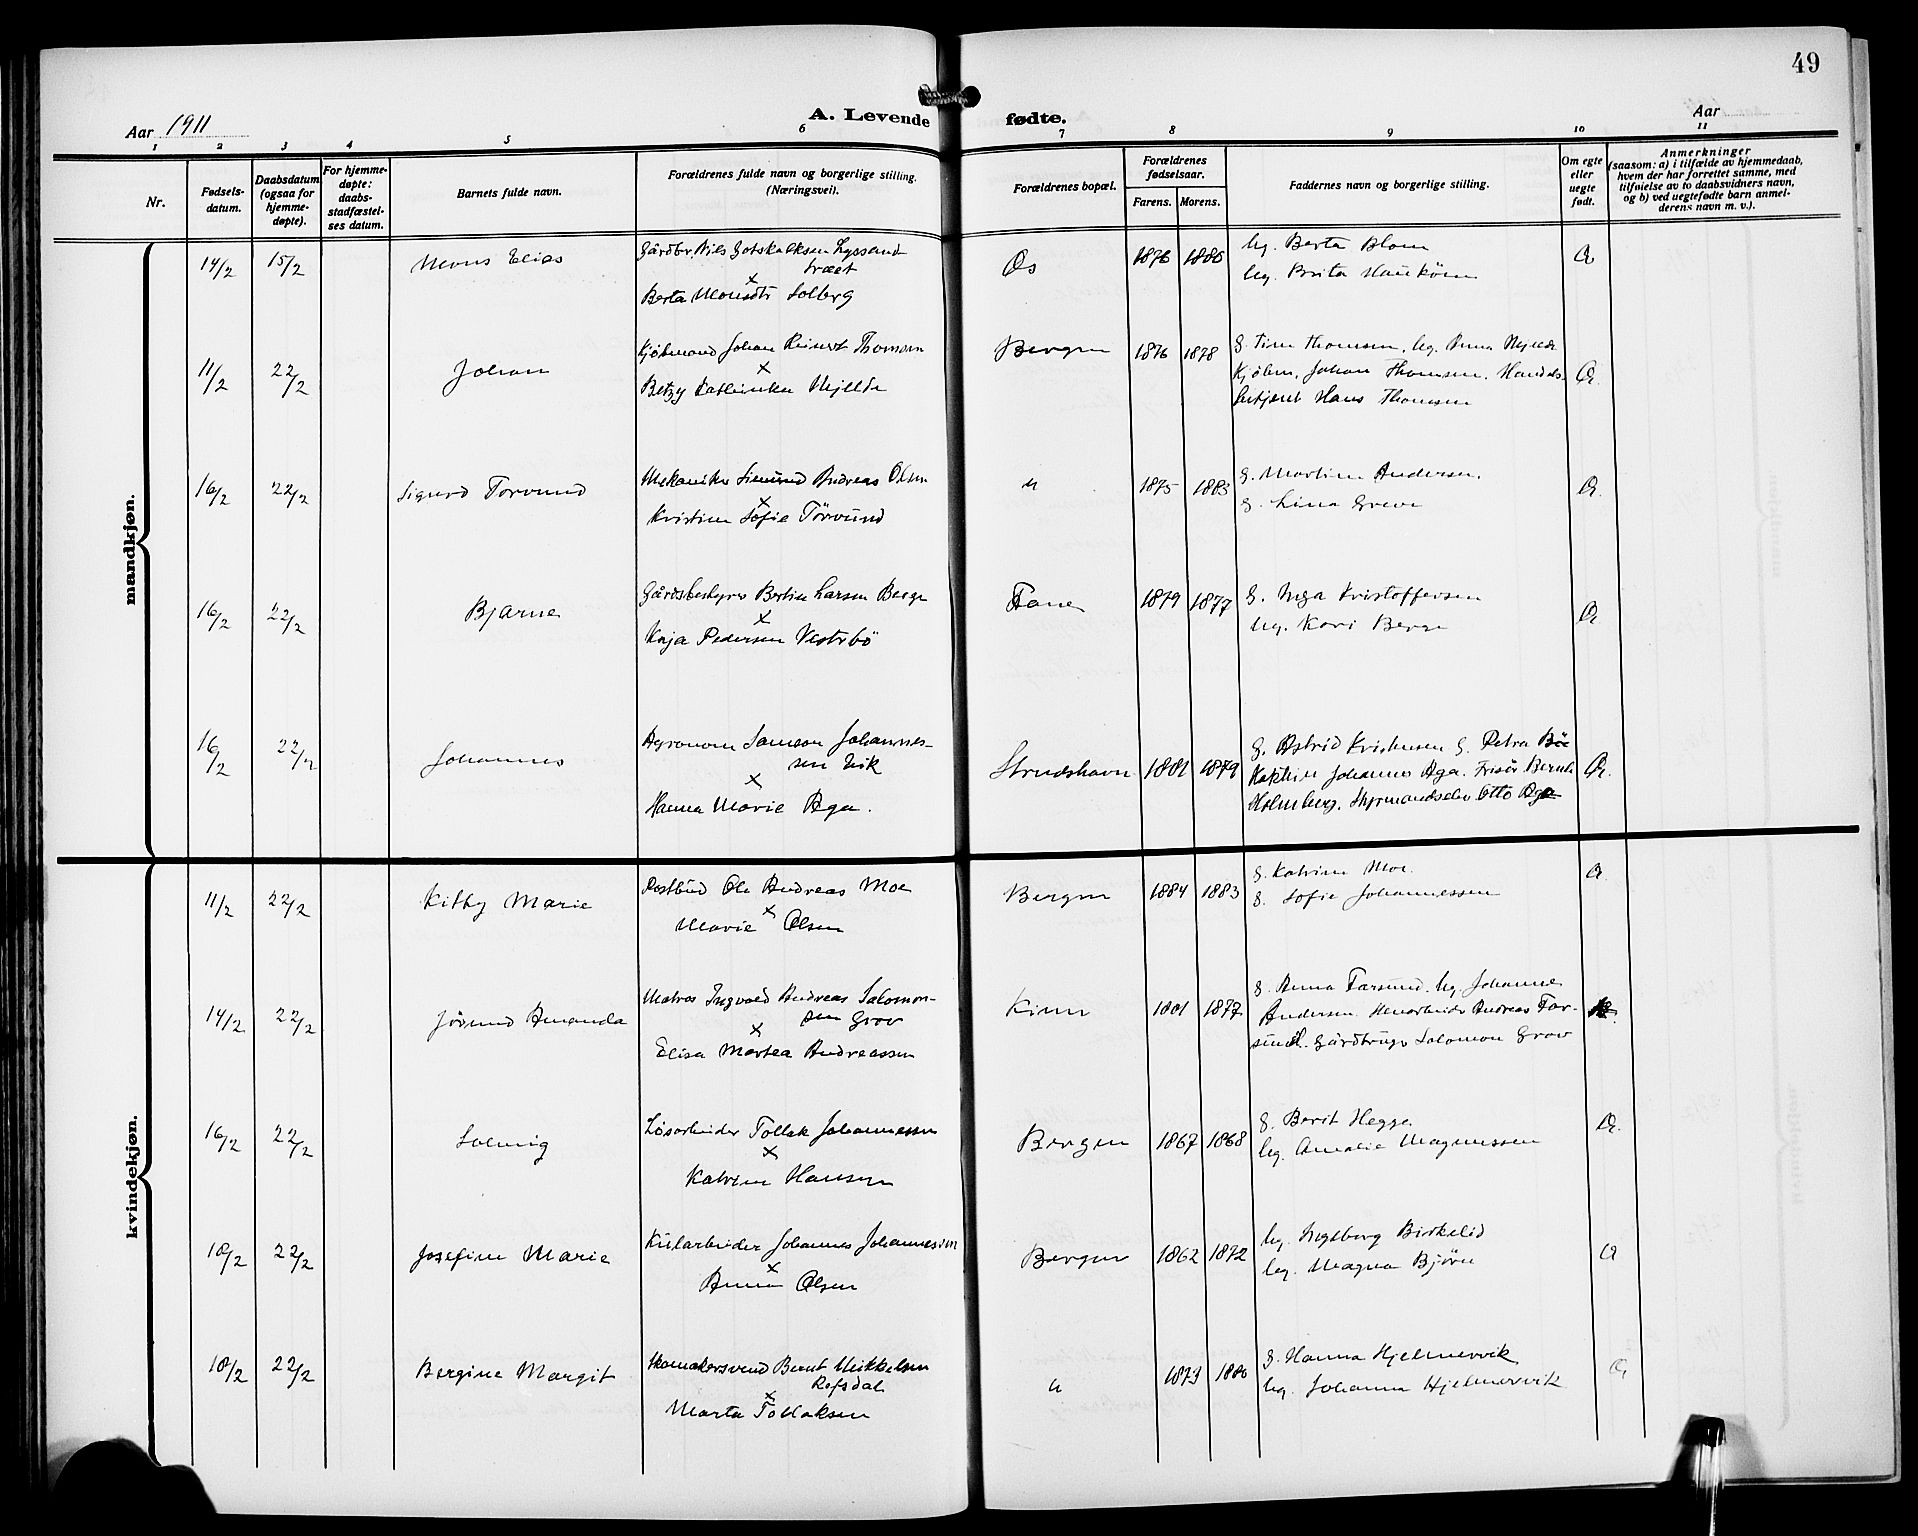 49
Aar 1911
A. Levende fødte.
Aar
1 2 3 4 5 6 7 8 9 10 11
Nr.
Fødsels-
datum.
Daabsdatum
(ogsaa for
hjemme-
døpte).
For hjemme-
døpte:
daabs-
stadfæstel-
ses datum.
Barnets fulde navn.
Forældrenes fulde navn og borgerlige stilling.
(Næringsvei).
Forældrenes bopæl.
Forældrenes
fødselsaar.
Farens. Morens.
Faddernes navn og borgerlige stilling.
Om egte
eller
uegte
født.
Anmerkninger
(saasom: a) i tilfælde av hjemmedaab,
hvem der har forrettet samme, med
tilføielse av to daabsvidners navn,
og b) ved uegtefødte barn anmel-
derens navn m. v.).
mandkjøn.
14/2 15/2 Mons Elias
Gårdbr. Nils Gotskalksen Lyssand
træet
x
Berta Monsdtr Solberg
Os 1876 1886
Ug. Berta Blom
Ug. Brita
11/2 22/2 Johan
Kjøbmand Johan Reinert Thomsen
x
Betzy Kathinka Mjelde
Bergen 1876 1878
G. Tina Thomsen, Ug. Anna Mjelde
Kjøbm. Johan Thomsen. Handels-
betjent Hans Thomsen
16/2 22/2 Sigurd Torvund
Mekaniker Simund Andreas Olsen
x
Kristine Sofie Torvund
" 1875 1883
G. Martine Andersen.
G. Lina Greve
16/2 22/2 Bjarne
Gårdsbestyrer Bertin Larsen Berge
x
Kaja Pedersen Vestrbö
Fane 1879 1877
G. Inga Kristoffersen
Ug. Kari Berge
16/2 22/2 Johannes
Agronom Samson Johannes-
sen
x
Hanna Marie Aga.
Strudshavn 1881 1879
G. Astrid Kristensen G. Petra Böe
Kaptein Johannes Aga. Frisør Bernh.
Holmberg. Styrmandselev Otto Aga
kvindekjøn.
11/2 22/2 Kitty Marie
Postbud Ole Andreas Moe
x
Marie Olsen
Bergen 1884 1883
G. Katrine Moe.
G. Sofie Johannessen
14/2 22/2 Jösund Amanda
Matros Ingvald Andreas Salomon-
sen Grov
x
Elisa Martea Andreassen
Kinn 1881 1877
G. Anna Farsund. Ug. Johanne
Andersen. Andreas Far-
sund. Gårdbruger Salomon Grov
16/2 22/2 Solveig
Løsarbeider Tollak Johannessen
x
Katrine Hansen
Bergen 1867 1868
G. Berit Hegge.
Ug. Amalie Magnussen
18/2 22/2 Josefine Marie
Kularbeider Johannes Johannessen
x
Anna Olsen
Bergen 1862 1872
Ug. Ingeborg Birkelid
Ug. Magna Björn
18/2 22/2 Bergine Margit
Skomakersvend Bernt Mikkelsen
Refsdal
x
Marta Tollaksen
" 1873 1886
G. Hanna Hjelmervik
Ug. Johanna Hjelmervik